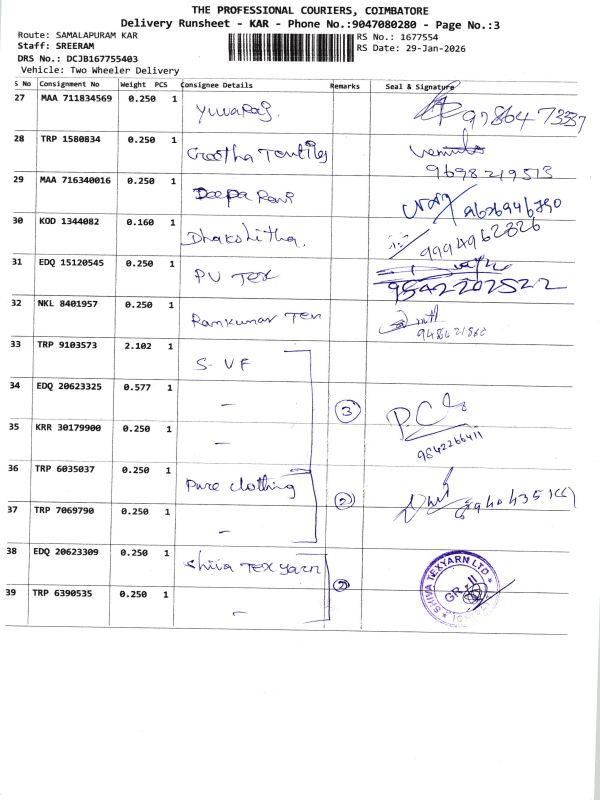 THE PROFESSIONAL COURIERS, COIMBATORE
Delivery Runsheet - KAR - Phone No.:9047080280 - Page No.:3
Route: SAMALAPURAM KAR
RS No.: 1677554
Staff: SREERAM
RS Date: 29-Jan-2026
DRS No.: DCJB167755403
Vehicle: Two Wheeler Delivery
S No Consignment No Weight PCS Consignee Details Remarks Seal & Signature
27 MAA 711834569 0.250 1 Yuvaraj.
28 TRP 1580834 0.250 1 9698219513
29 MAA 716340016 0.250 1 Deepa Rani 9626946790
30 KOD 1344082 0.160 1 Dhakshitha. 9994962826
31 EDQ 15120545 0.250 1 PV Tex 9542202522
32 NKL 8401957 0.250 1 Ramkumar Tex
33 TRP 9103573 2.102 1 S. VF
34 EDQ 20623325 0.577 1 - 3
35 KRR 30179900 0.250 1 - 9842266411
36 TRP 6035037 0.250 1 Pure clothing 2
37 TRP 7069790 0.250 1 -
38 EDQ 20623309 0.250 1 Shiva Tex yarn 2 SHIVA TEXYARN LTD
39 TRP 6390535 0.250 1 -